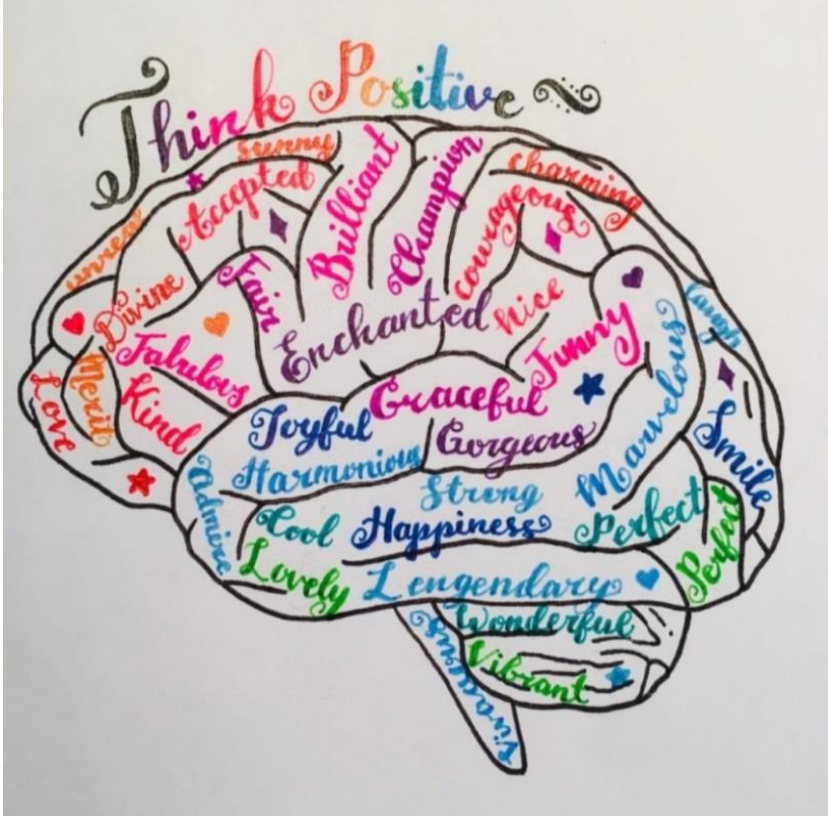 Think Positive
sunny
Accepted
Brilliant
Champion
charming
courageous
unreal
Divine
Fair
Enchanted
nice
Funny
laugh
Fabulous
Merit
Love
Kind
Joyful
Graceful
Gorgeous
Marvelous
Smile
Harmonious
Admire
Strong
Cool
Happiness
Perfect
Perfect
Lovely
Lengendary
Wonderful
Vibrant